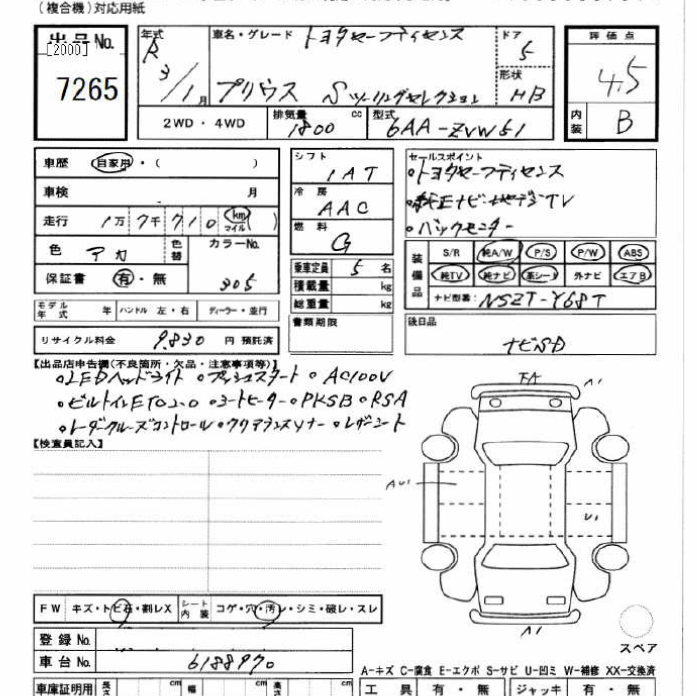 （複合機）対応用紙
出品No.
[2000]
7265
年式
R
3/1月
車名・グレード トヨタセーフティセンス
プリウス Sツーリングセレクション
ドア
5
形状
HB
評価点
4.5
内装 B
2WD・4WD
排気量 1800 cc
型式 6AA-ZVW51
車歴 自家用・（ ）
車検 月
走行 1万7千710 km マイル
色 アカ
色替
カラーNo.
305
保証書 有・無
シフト
1AT
冷房
AAC
燃料
G
乗車定員 5名
積載量 kg
総重量 kg
書類期限
セールスポイント
・トヨタセーフティセンス
・純正ナビ・地デジTV
・バックモニター
装備品
S/R 純A/W P/S P/W ABS
純TV 純ナビ 革シート 外ナビ エアB
ナビ型番： NSZT-Y68T
モデル年式 年 ハンドル 左・右 ディーラー・並行
リサイクル料金 9,830 円 預託済
後日品
ナビSD
【出品店申告欄(不良箇所・欠品・注意事項等)】
・LEDヘッドライト ・プッシュスタート ・AC100V
・ビルトインETC2.0 ・シートヒーター ・PKSB ・RSA
・レーダークルーズコントロール ・クリアランスソナー ・レザーシート
【検査員記入】
A1
AU1
U1
A1
スペア
FW キズ・トビ石・割レX
シート内装 コゲ・穴・汚レ・シミ・破レ・スレ
登録No.
車台No. 6188970
A-キズ C-腐食 E-エクボ S-サビ U-凹ミ W-補修 XX-交換済
車庫証明用 長さ cm 幅 cm 高さ cm
工具 有・無 ジャッキ 有・無